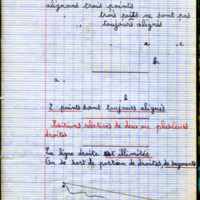 alignons trois points
trois points ne sont pas
toujours alignés
a . c
b
a .
b
2 points sont toujours alignés
Positions relatives de deux ou plusieurs
droites
La ligne droite est illimitée
On se sert de portion de droites, de segments